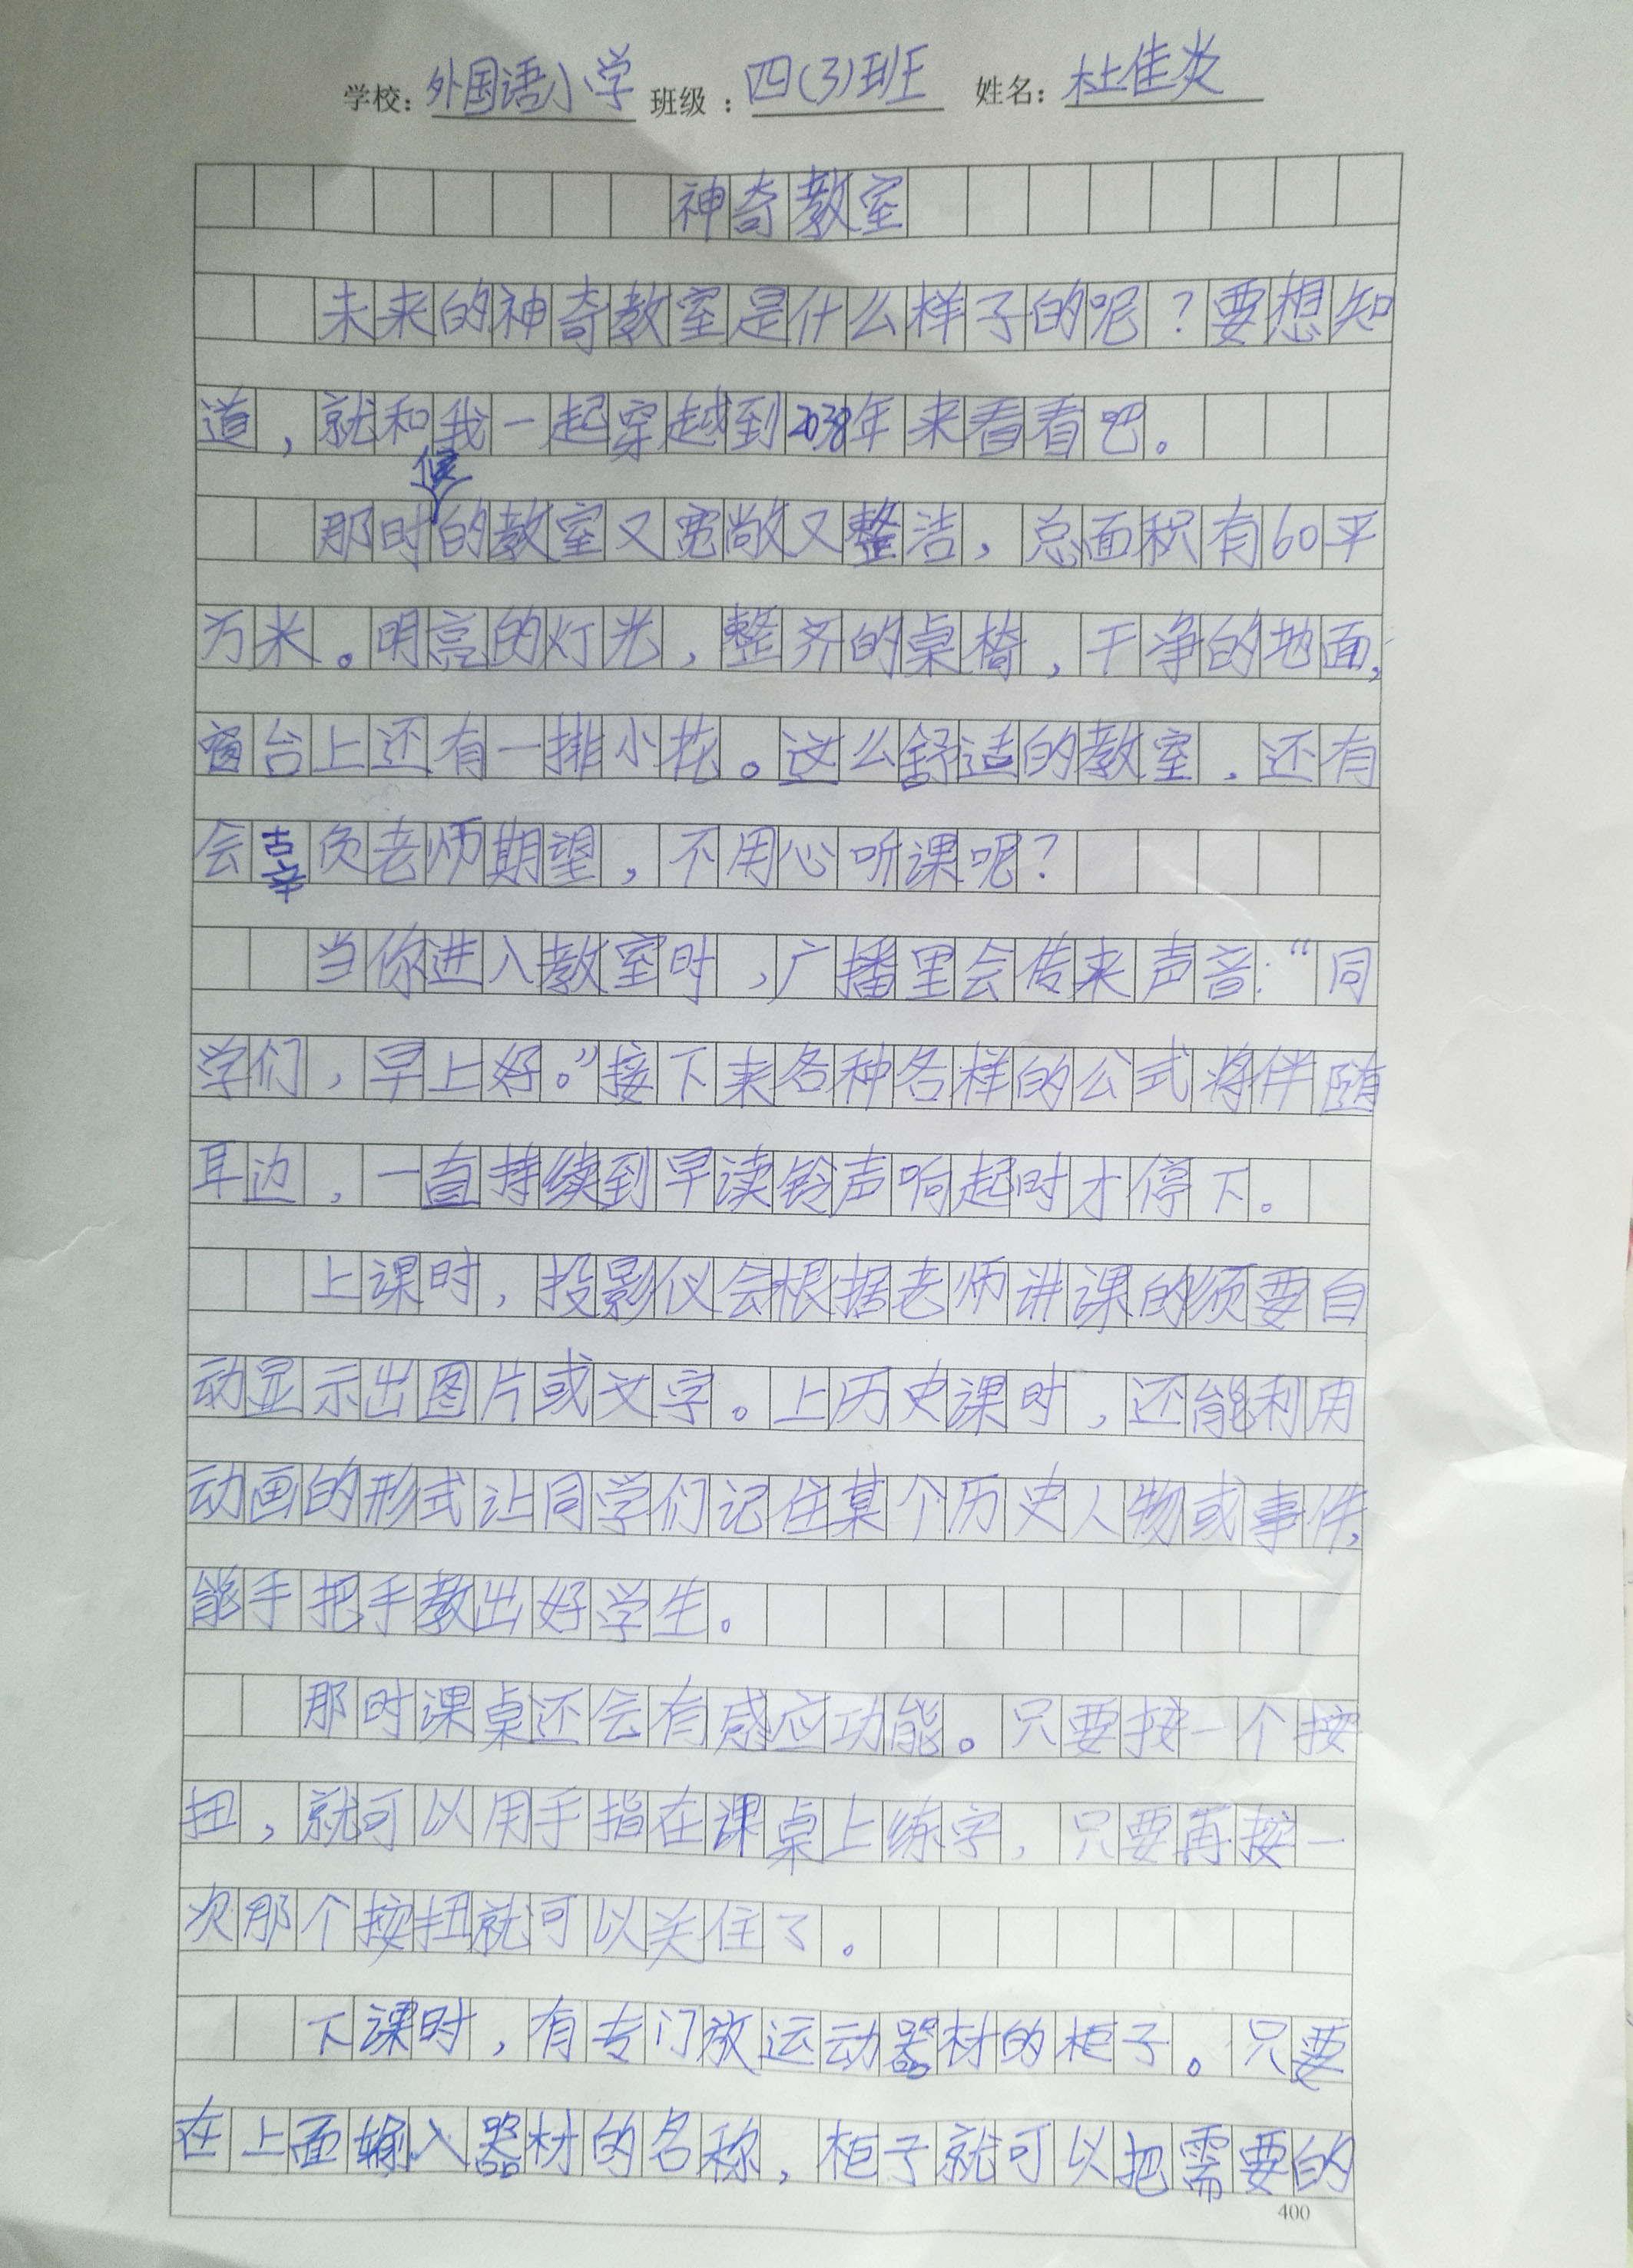 学校：外国语小学 班级：四(3)班 姓名：杜佳炎
神奇教室
未来的神奇教室是什么样子的呢？要想知
道，就和我一起穿越到2038年来看看吧。
那时候的教室又宽敞又整洁，总面积有60平
方米。明亮的灯光，整齐的桌椅，干净的地面，
窗台上还有一排小花。这么舒适的教室，还有
会辜负老师期望，不用心听课呢？
当你进入教室时，广播里会传来声音：“同
学们，早上好。”接下来各种各样的公式将伴随
耳边，一直持续到早读铃声响起时才停下。
上课时，投影仪会根据老师讲课的须要自
动显示出图片或文字。上历史课时，还能利用
动画的形式让同学们记住某个历史人物或事件，
能手把手教出好学生。
那时课桌还会有感应功能。只要按一个按
扭，就可以用手指在课桌上练字，只要再按一
次那个按扭就可以关住了。
下课时，有专门放运动器材的柜子。只要
在上面输入器材的名称，柜子就可以把需要的
400